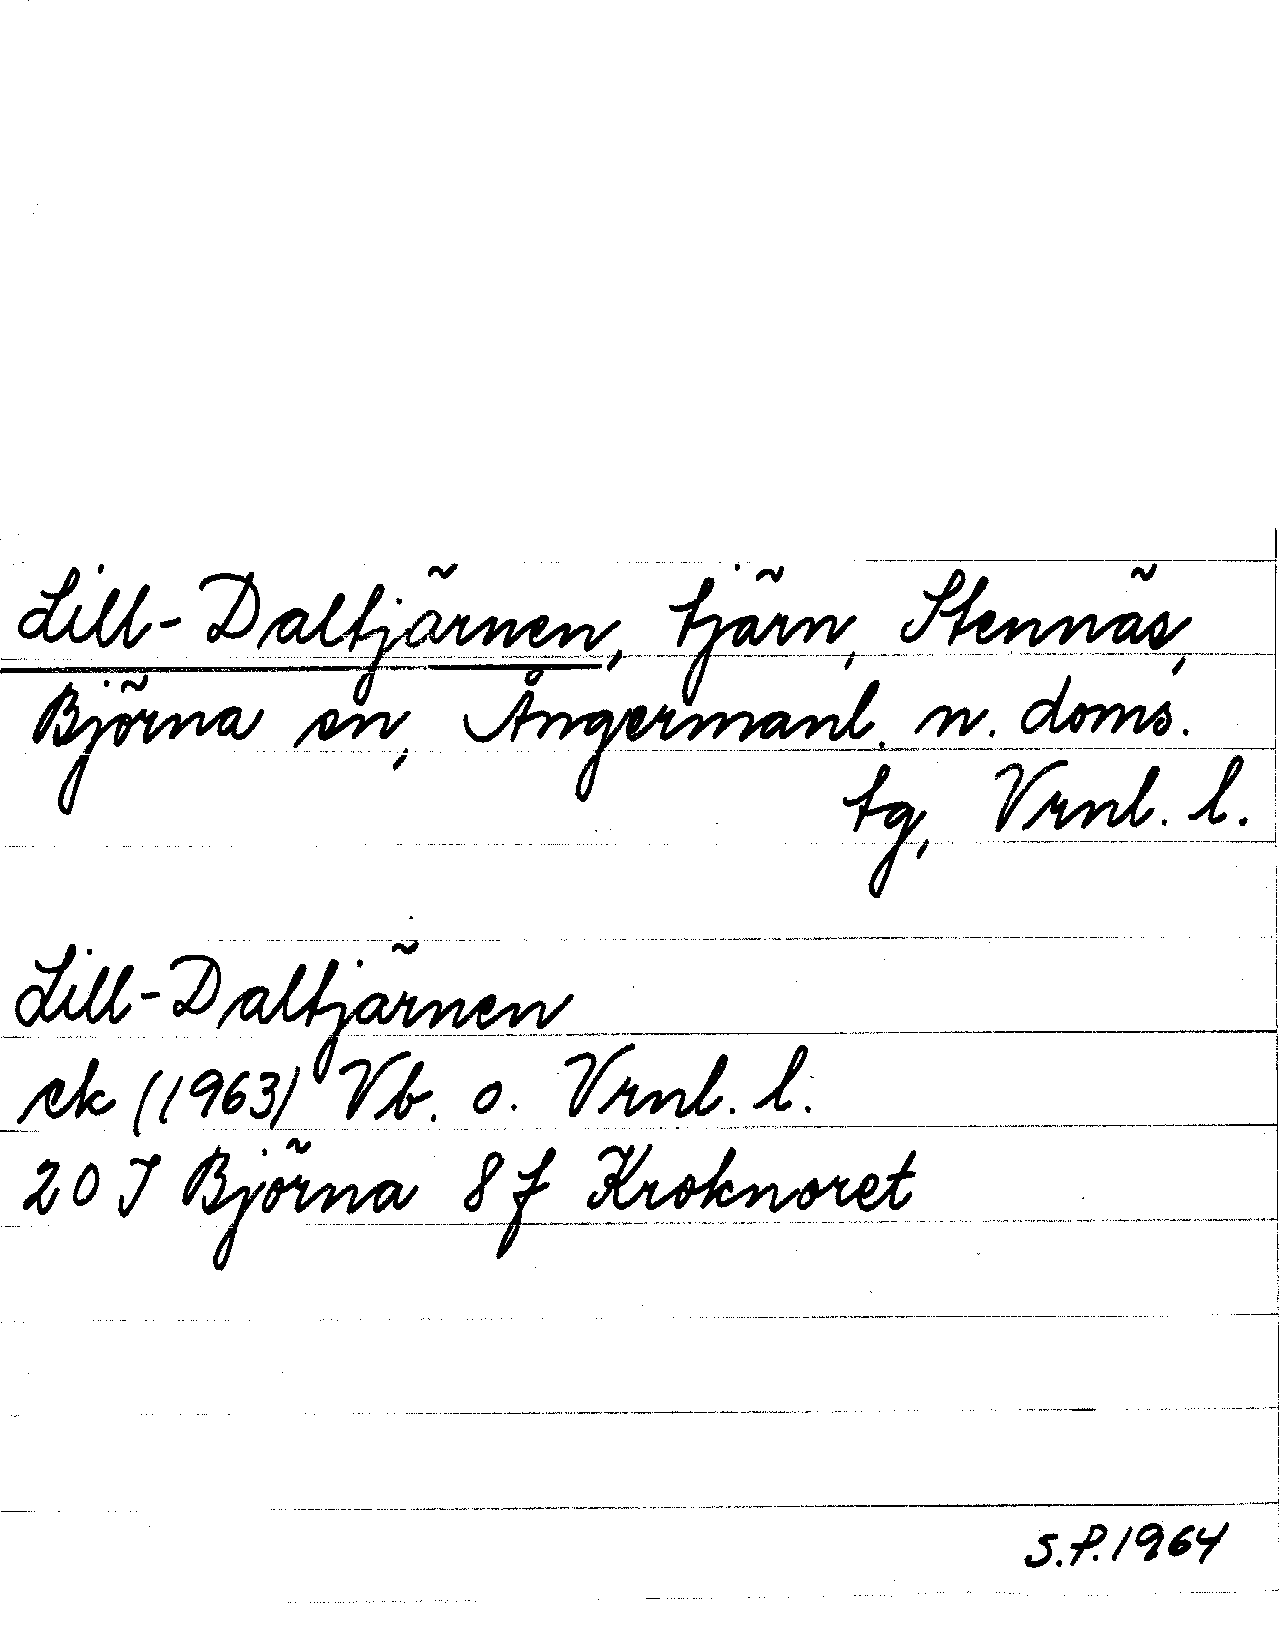 Lill-Daltjärnen, tjärn, Stennäs,
Björna sn, Ångermanl. n. doms.
tg, Vrnl. l.
Lill-Daltjärnen
ek (1963) Vb. o. Vrnl. l.
20 J Björna 8 f Kroknoret
S.P. 1964